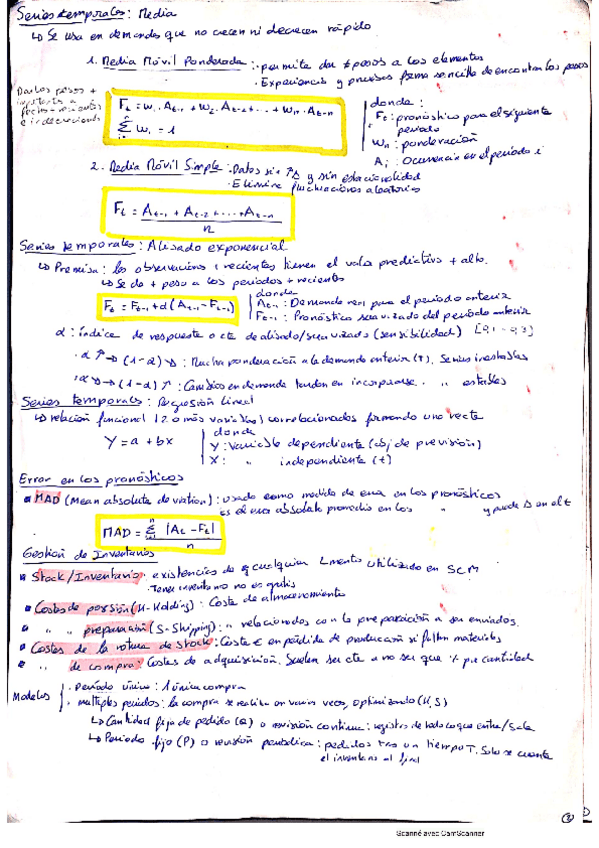 Series temporales: Media
↳ Se usa en demandas que no crecen ni decrecen rápido
1. Media Móvil Ponderada: · permite dar ≠ pesos a los elementos
· Experiencia y pruebas forma sencilla de encontrar los pesos
Dar los pesos +
F_t = w₁.A_{t-1} + w₂.A_{t-2} + ... + w_n.A_{t-n}
Σ w_i = 1
donde:
F_t: pronóstico para el siguiente
período
W_n: ponderación
A_i: Ocurrencia en el período i
2. Media Móvil Simple: · Datos sin ↑↘ y sin estacionalidad
· Elimina fluctuaciones aleatorias
F_t = A_{t-1} + A_{t-2} + .... + A_{t-n}
n
Series temporales: Alisado exponencial
↳ Premisa: las observaciones + recientes tienen el valor predictivo + alto.
↳ Se da + peso a los períodos + recientes
F_t = F_{t-1} + α (A_{t-1} - F_{t-1})
donde
A_{t-1}: Demanda real para el periodo anterior
F_{t-1}: Pronóstico suavizado del período anterior
α: Índice de respuesta o cte de alisado/suavizado (sensibilidad) [0,1 - 0,3]
· α ↑ → (1-α) ↘: Mucha ponderación a la demanda anterior (T). Series inestables
· α ↘ → (1-α) ↑: Cambios en demanda tardan en incorporarse. " estables
Series temporales: Regresión lineal
↳ relación funcional (2 o más variables) correlacionadas formando una recta
Y = a + bx
donde
Y: Variable dependiente (obj de previsión)
X: " independiente (t)
Error en los pronósticos
MAD (Mean absolute deviation): usado como medida de error en los pronósticos
es el error absoluto promedio en los " y puede ↘ en el t
MAD = Σ |A_t - F_t|
n
Gestión de Inventarios
Stock/Inventario: existencias de cualquier elemento utilizado en SCM
Tener inventario no es gratis
Costos de posesión (H-Holding): Coste de almacenamiento
" " preparación (S-Shipping): " relacionados con la preparación a ser enviados.
Costes de la rotura de stock: Coste € en pérdida de producción si faltan materiales
" de compra: Costes de adquisición. Suelen ser cte a no ser que % por cantidad
Modelos
· Período único: 1 única compra
· múltiples períodos: la compra se realiza en varias veces, optimizando (H,S)
↳ Cantidad fija de pedido (Q) o revisión continua: registro de todo lo que entra/sale
↳ Período fijo (P) o revisión periódica: pedidos tras un tiempo T. Solo se cuenta
el inventario al final
Scanné avec CamScanner